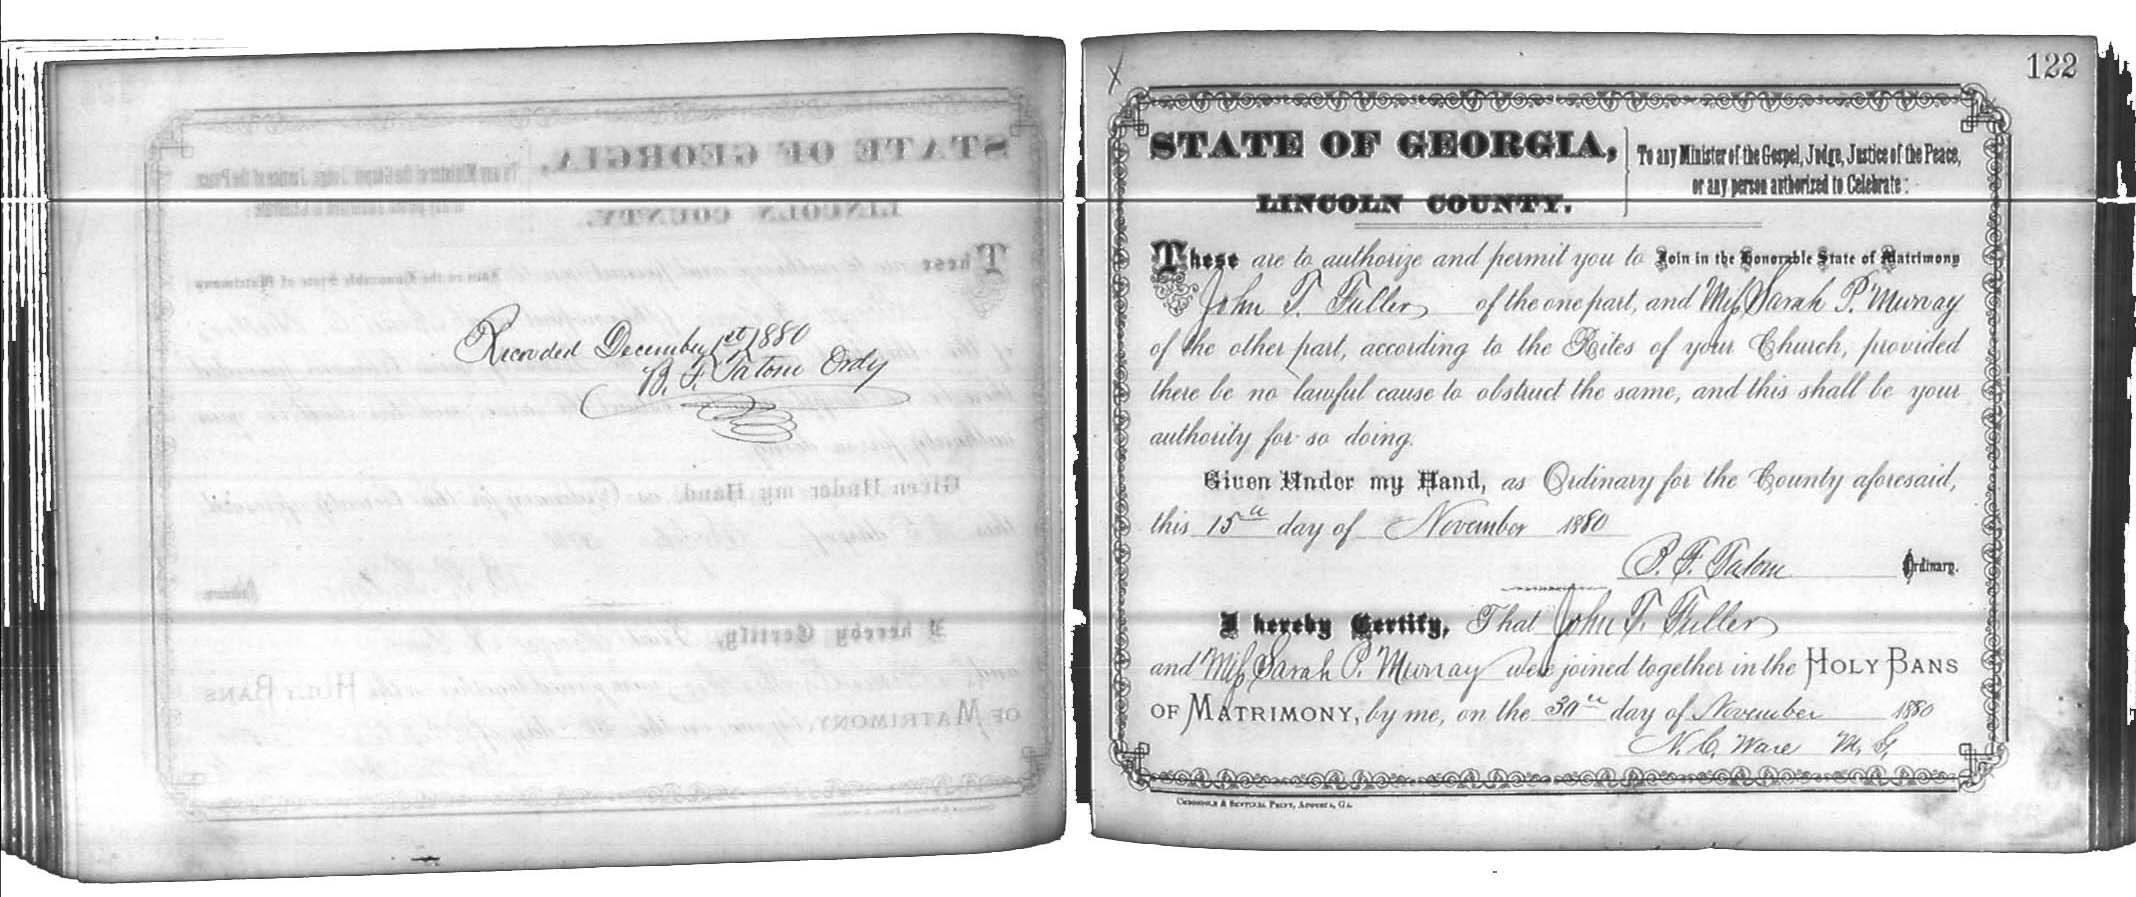 Recorded December 1st 1880
B. F. Tatom Ordy
122
X
STATE OF GEORGIA,
LINCOLN COUNTY.
To any Minister of the Gospel, Judge, Justice of the Peace,
or any person authorized to Celebrate:
These are to authorize and permit you to Join in the Honorable State of Matrimony
John T. Fuller of the one part, and Miss Sarah P. Murray
of the other part, according to the Rites of your Church, provided
there be no lawful cause to obstruct the same, and this shall be your
authority for so doing.
Given Under my Hand, as Ordinary for the County aforesaid,
this 15th day of November 1880
B. F. Tatom Ordinary.
I hereby Certify, That John T. Fuller
and Miss Sarah P. Murray were joined together in the HOLY BANS
OF MATRIMONY, by me, on the 30th day of November 1880
N. C. Ware M. G.
CHRONICLE & SENTINEL PRINT, AUGUSTA, GA.